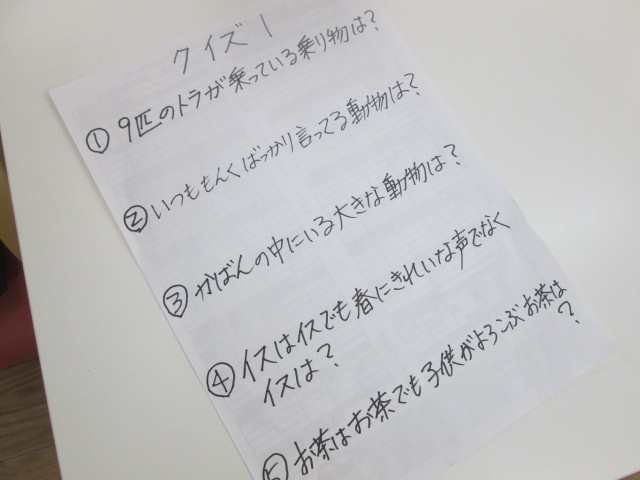 クイズ1
① 9匹のトラが乗っている乗り物は?
② いつももんくばっかり言ってる動物は?
③ かばんの中にいる大きな動物は?
④ イスはイスでも春にきれいな声でなく
イスは?
⑤ お茶はお茶でも子供がよろこぶお茶は
?